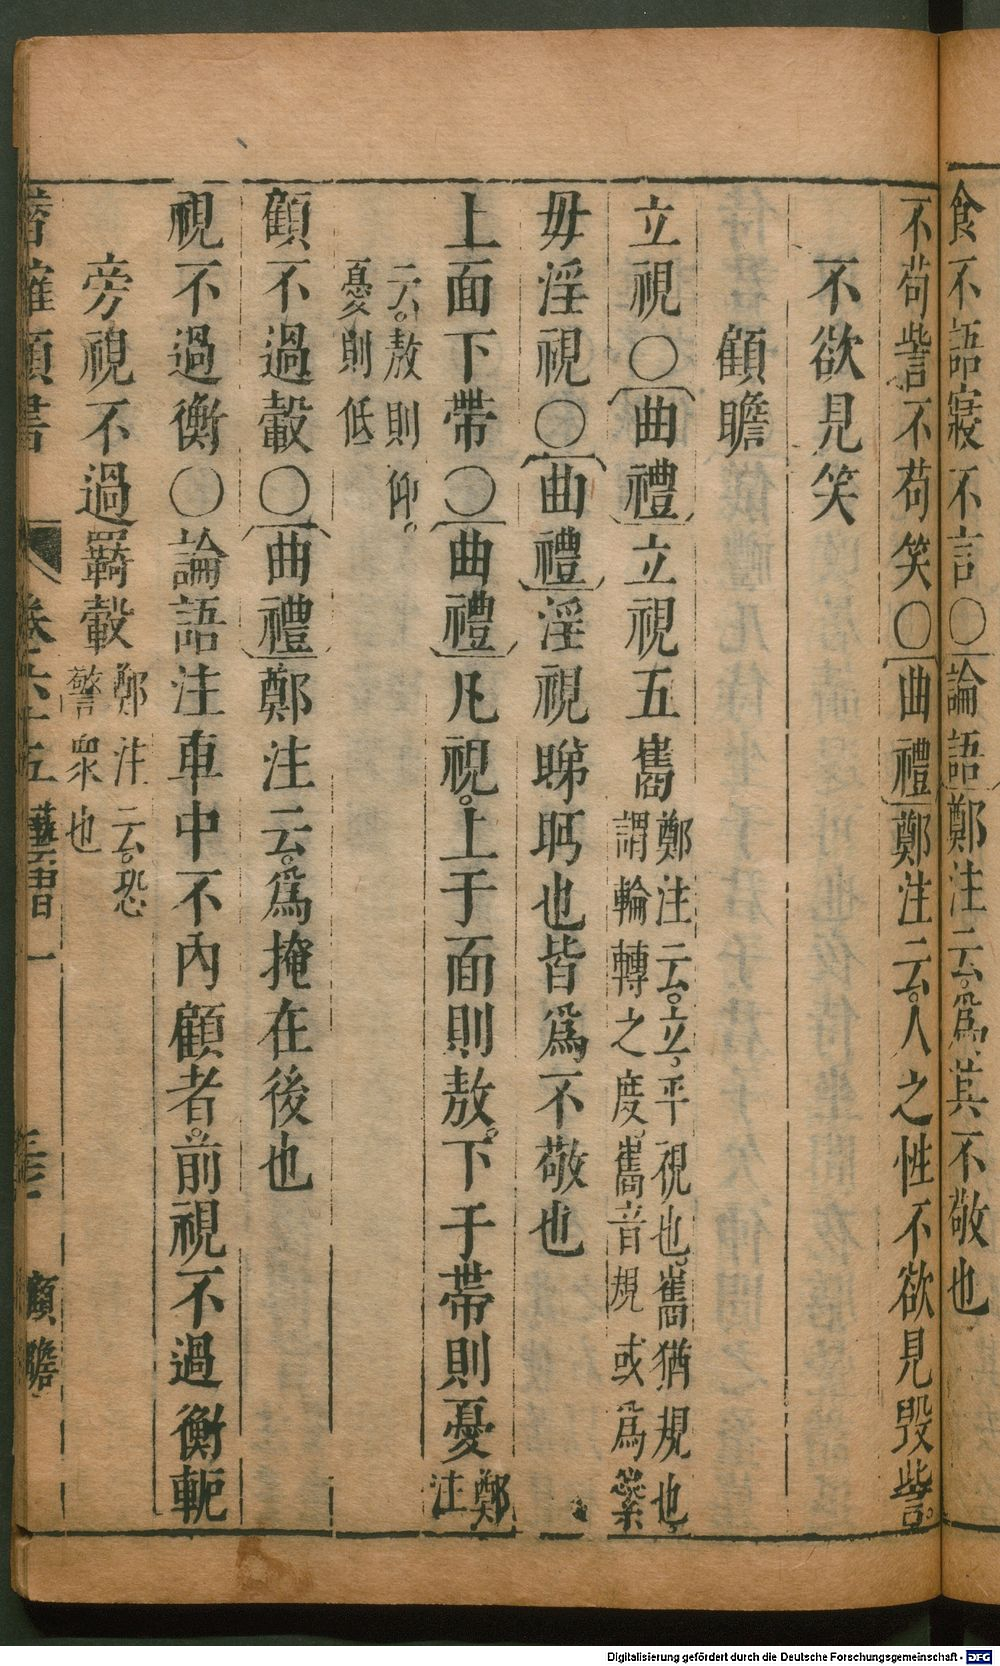 食不語寢不言○論語鄭注云。爲其不敬也
不苟訾不苟笑○曲禮鄭注云。人之性不欲見毀訾。
不欲見笑
顧瞻
立視○曲禮立視五巂鄭注云。立平視也。巂猶規也。
謂輪轉之度。巂音規或爲繠
毋淫視○曲禮淫視睇眄也皆爲不敬也
上面下帶○曲禮凡視。上于面則敖。下于帶則憂鄭
注
云。敖則仰。
憂則低
顧不過轂○曲禮鄭注云。爲掩在後也
視不過衡○論語注車中不內顧者。前視不過衡軛
旁視不過輢轂鄭注云。恐
警衆也
卷六十五 顧瞻
Digitalisierung gefördert durch die Deutsche Forschungsgemeinschaft - DFG